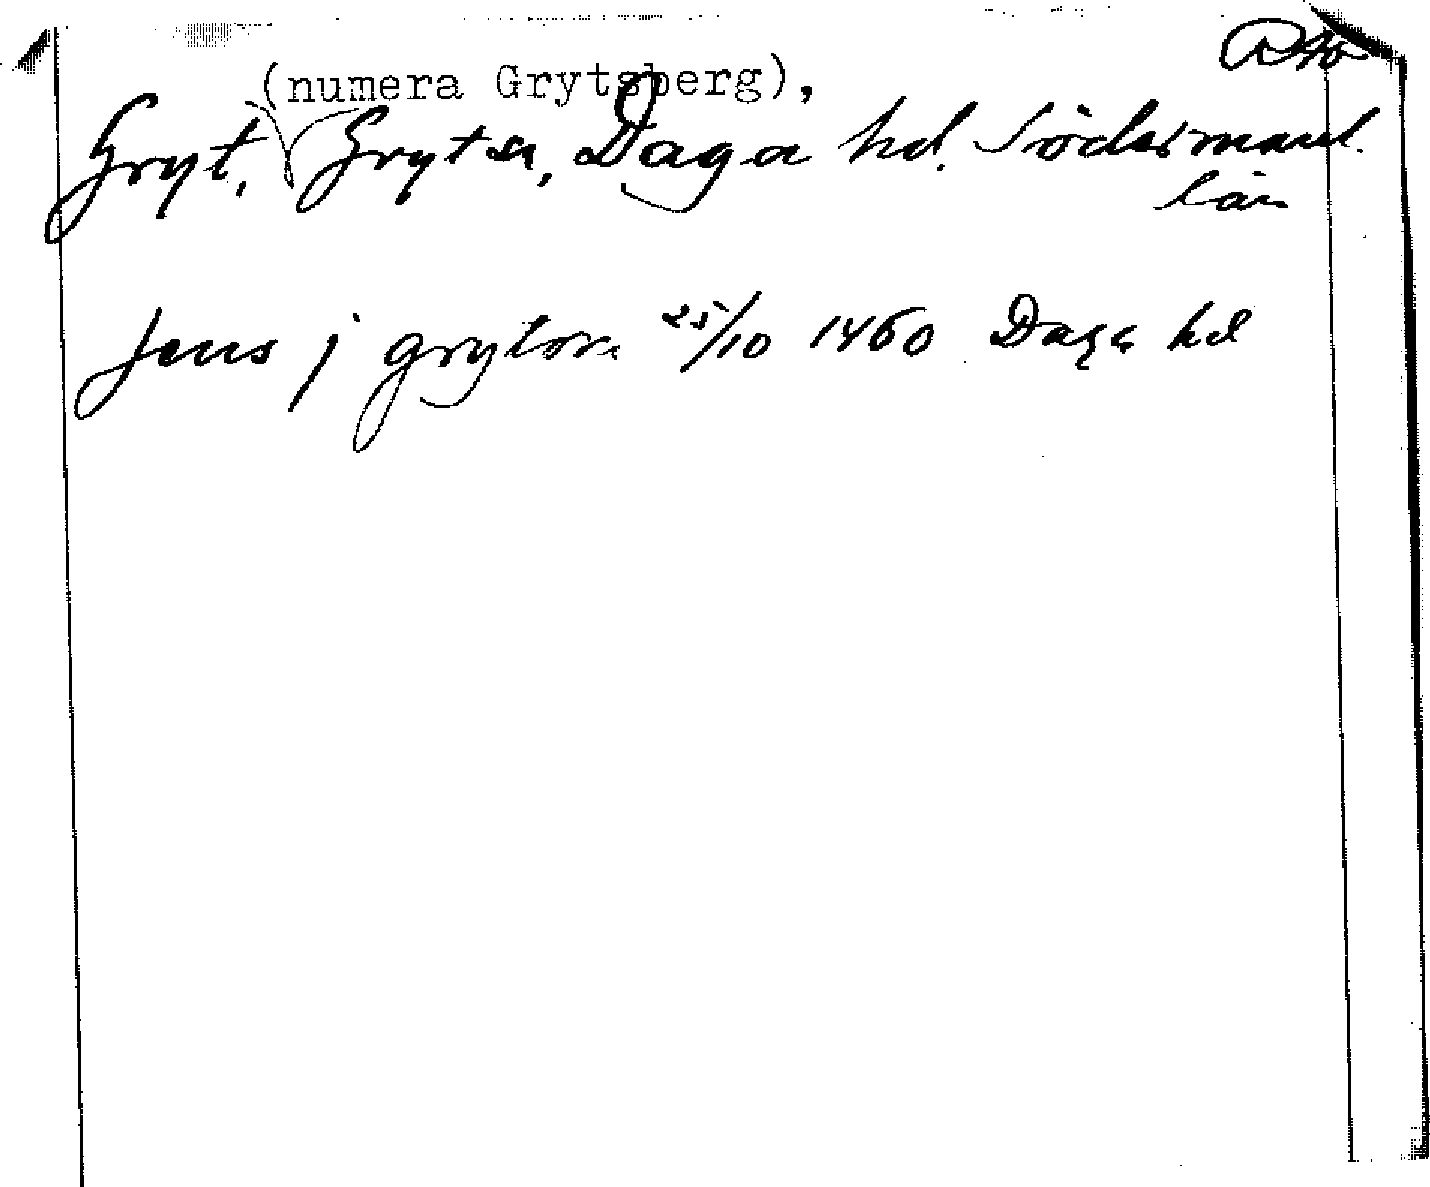 (numera Grytsberg),
Gryt, Gryts sn, Daga hd. Södermanl.
län
Jens j grytom 25/10 1460 Daga hd